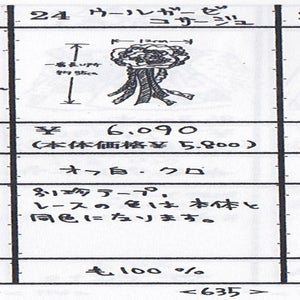 24 ウールガーゼ
コサージュ
12cm
一番長い所
約35cm
¥ 6,090
(本体価格¥ 5,800)
オフ白・クロ
別珍テープ,
レースの色は本体と
同色になります。
毛100%
<635>